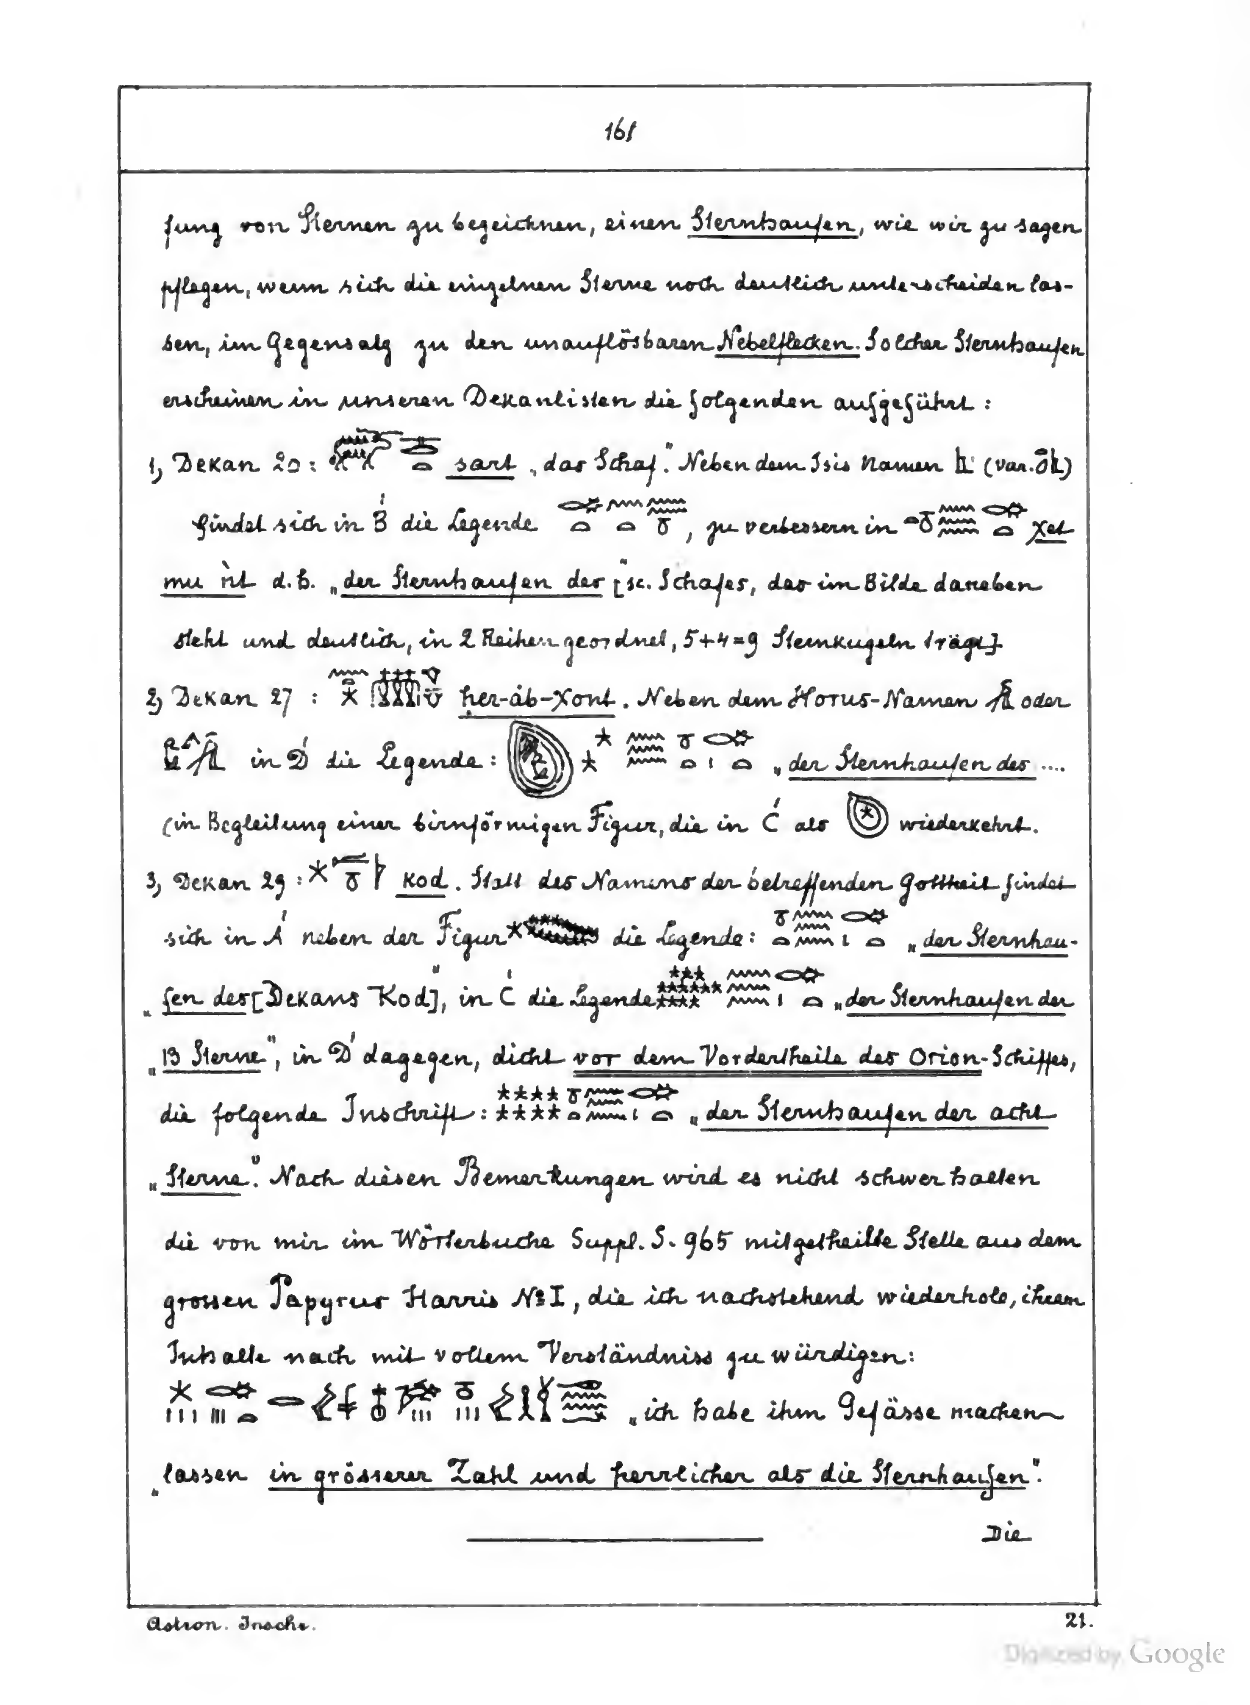 161
fung von Sternen zu bezeichnen, einen Sternhaufen, wie wir zu sagen
pflegen, wenn sich die einzelnen Sterne noch deutlich unterscheiden las-
sen, im Gegensatz zu den unauflösbaren Nebelflecken. Solcher Sternhaufen
erscheinen in unseren Dekanlisten die folgenden aufgeführt:
1, Dekan 20: sart „das Schaf." Neben dem Isis Namen (var. )
findet sich in B' die Legende , zu verbessern in χet
mu nt d.h. „der Sternhaufen des" [sc. Schafes, das im Bilde daneben
steht und deutlich, in 2 Reihen geordnet, 5+4=9 Sternkugeln trägt].
2, Dekan 27: ḥer-áb-χont. Neben dem Horus-Namen oder
in D' die Legende: „der Sternhaufen des ....
(in Begleitung einer birnförmigen Figur, die in C' als wiederkehrt.
3, Dekan 29: kod. Statt des Namens der betreffenden Gottheit findet
sich in A' neben der Figur die Legende: „der Sternhau-
„fen des [Dekans Kod]", in C' die Legende „der Sternhaufen der
„13 Sterne", in D' dagegen, dicht vor dem Vordertheile des Orion-Schiffes,
die folgende Inschrift: „der Sternhaufen der acht
„Sterne". Nach diesen Bemerkungen wird es nicht schwer halten
die von mir im Wörterbuche Suppl. S. 965 mitgetheilte Stelle aus dem
grossen Papyrus Harris No I, die ich nachstehend wiederhole, ihrem
Inhalte nach mit vollem Verständniss zu würdigen:
„ich habe ihm Gefässe machen
„lassen in grösserer Zahl und herrlicher als die Sternhaufen".
Die
Astron. Inschr. 21.
Digitized by Google